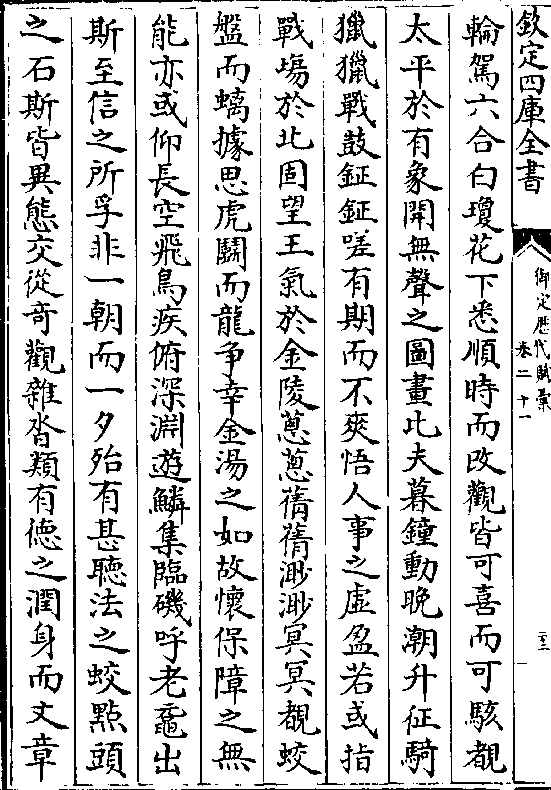 欽定四庫全書
御定歷代賦彙
卷二十一
二十三
輪駕六合白瓊花下悉順時而改觀皆可喜而可駭覩
太平於有象開無聲之圖畫比夫暮鐘動晚潮升征騎
獵獵戰鼓鉦鉦嗟有期而不爽悟人事之虛盈若或指
戰塲於北固望王氣於金陵蔥蔥蒨蒨渺渺冥冥覩蛟
盤而螭據思虎鬭而龍争幸金湯之如故懷保障之無
能亦或仰長空飛鳥疾俯深淵遊鱗集臨磯呼老黿出
斯至信之所孚非一朝而一夕殆有甚聽法之蛟㸃頭
之石斯皆異態交從奇觀雜沓類有德之潤身而文章